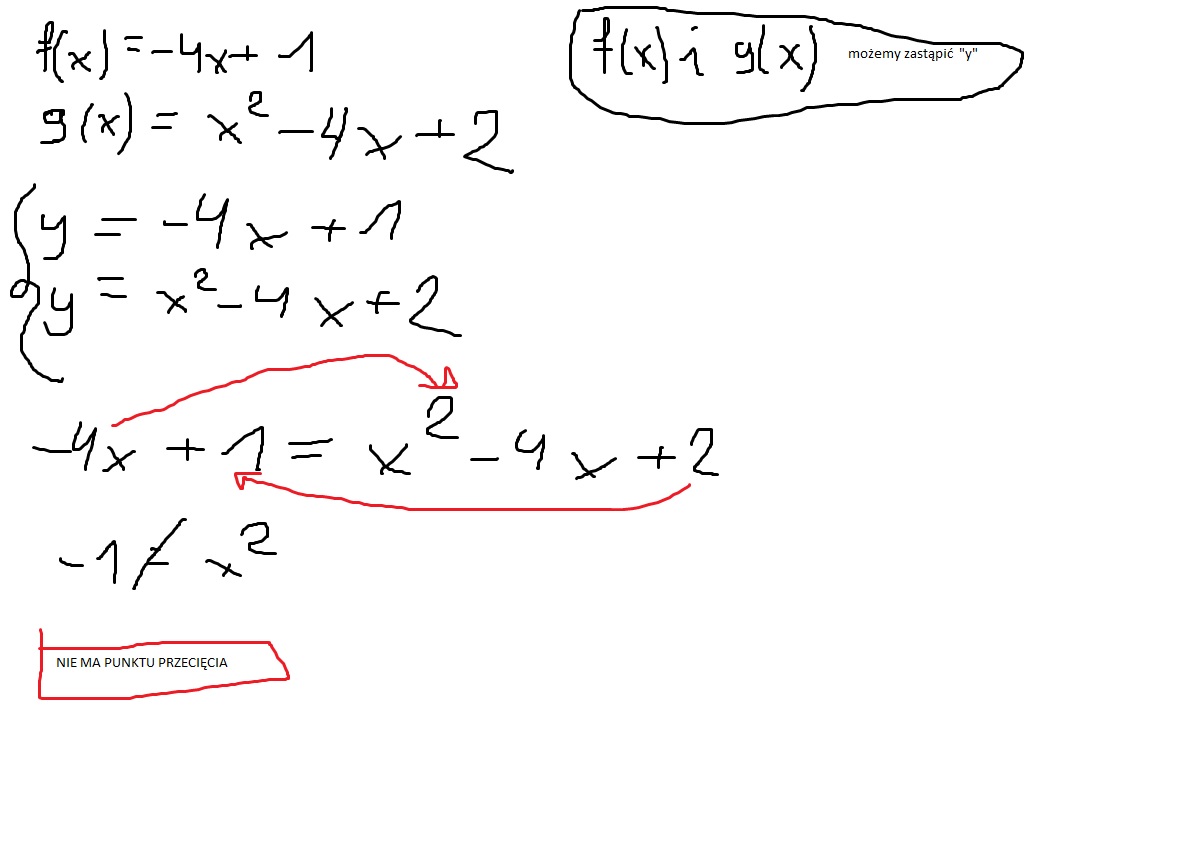 f(x) = -4x + 1
g(x) = x² - 4x + 2
f(x) i g(x) możemy zastąpić "y"
y = -4x + 1
y = x² - 4x + 2
-4x + 1 = x² - 4x + 2
-1 ≠ x²
NIE MA PUNKTU PRZECIĘCIA